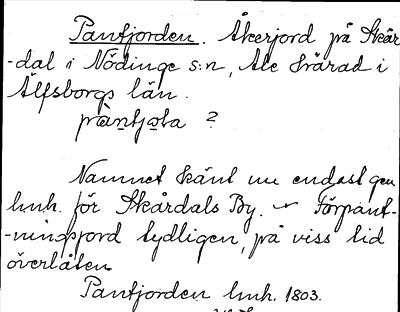 Pantjorden. Åkerjord på Skår
-dal i Nödinge s:n, Ale härad i
Älfsborgs län.
pa̱ntjo̱la ?
Namnet känt nu endast gen.
hmh. för Skårdals By. Förpant-
-ningsjord tydligen, på viss tid
överlåten
Pantjorden hmh. 1803.